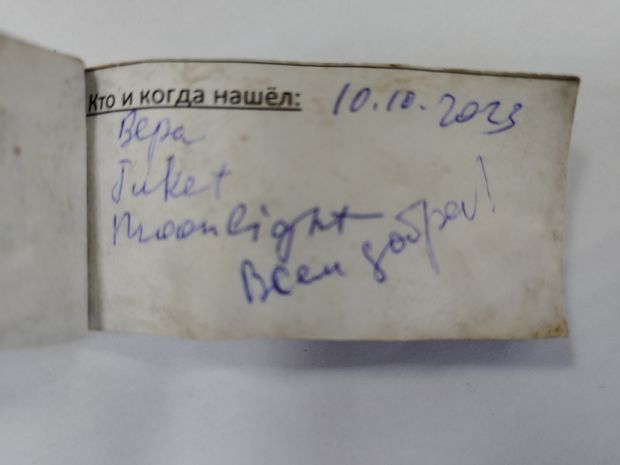 Кто и когда нашёл: 10.10.2023
Вера
Tuket
Moonlight
Всем добра!